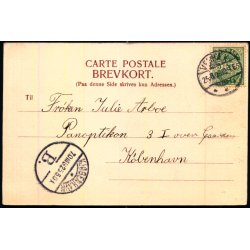 CARTE POSTALE
BREVKORT.
(Paa denne Side skrives kun Adressen.)
Til
Frøken Julie Arboe
Panoptikon 3 I over Gaarden
København
KJØBENHAVN
B.